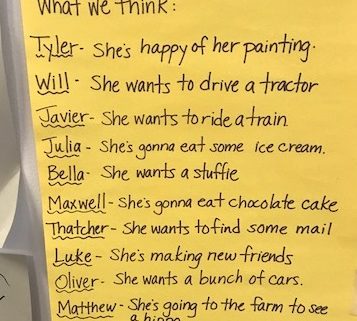 What we think:
Tyler- She's happy of her painting.
Will - She wants to drive a tractor
Javier- She wants to ride a train
Julia - She's gonna eat some ice cream.
Bella- She wants a stuffie
Maxwell- She's gonna eat chocolate cake
Thatcher- She wants to find some mail
Luke - She's making new friends
Oliver- She wants a bunch of cars.
Matthew- She's going to the farm to see
a hippo